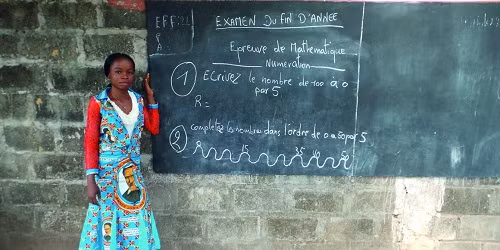 EFF
P
A
EXAMEN DU FIN D'ANNEE
Epreuve de Mathematique
Numeration
1 Ecrivez le nombre de 100 à 0
par 5
R=
2 completez la nombre dans l'ordre de 0 à 50 par 5
15 35 40